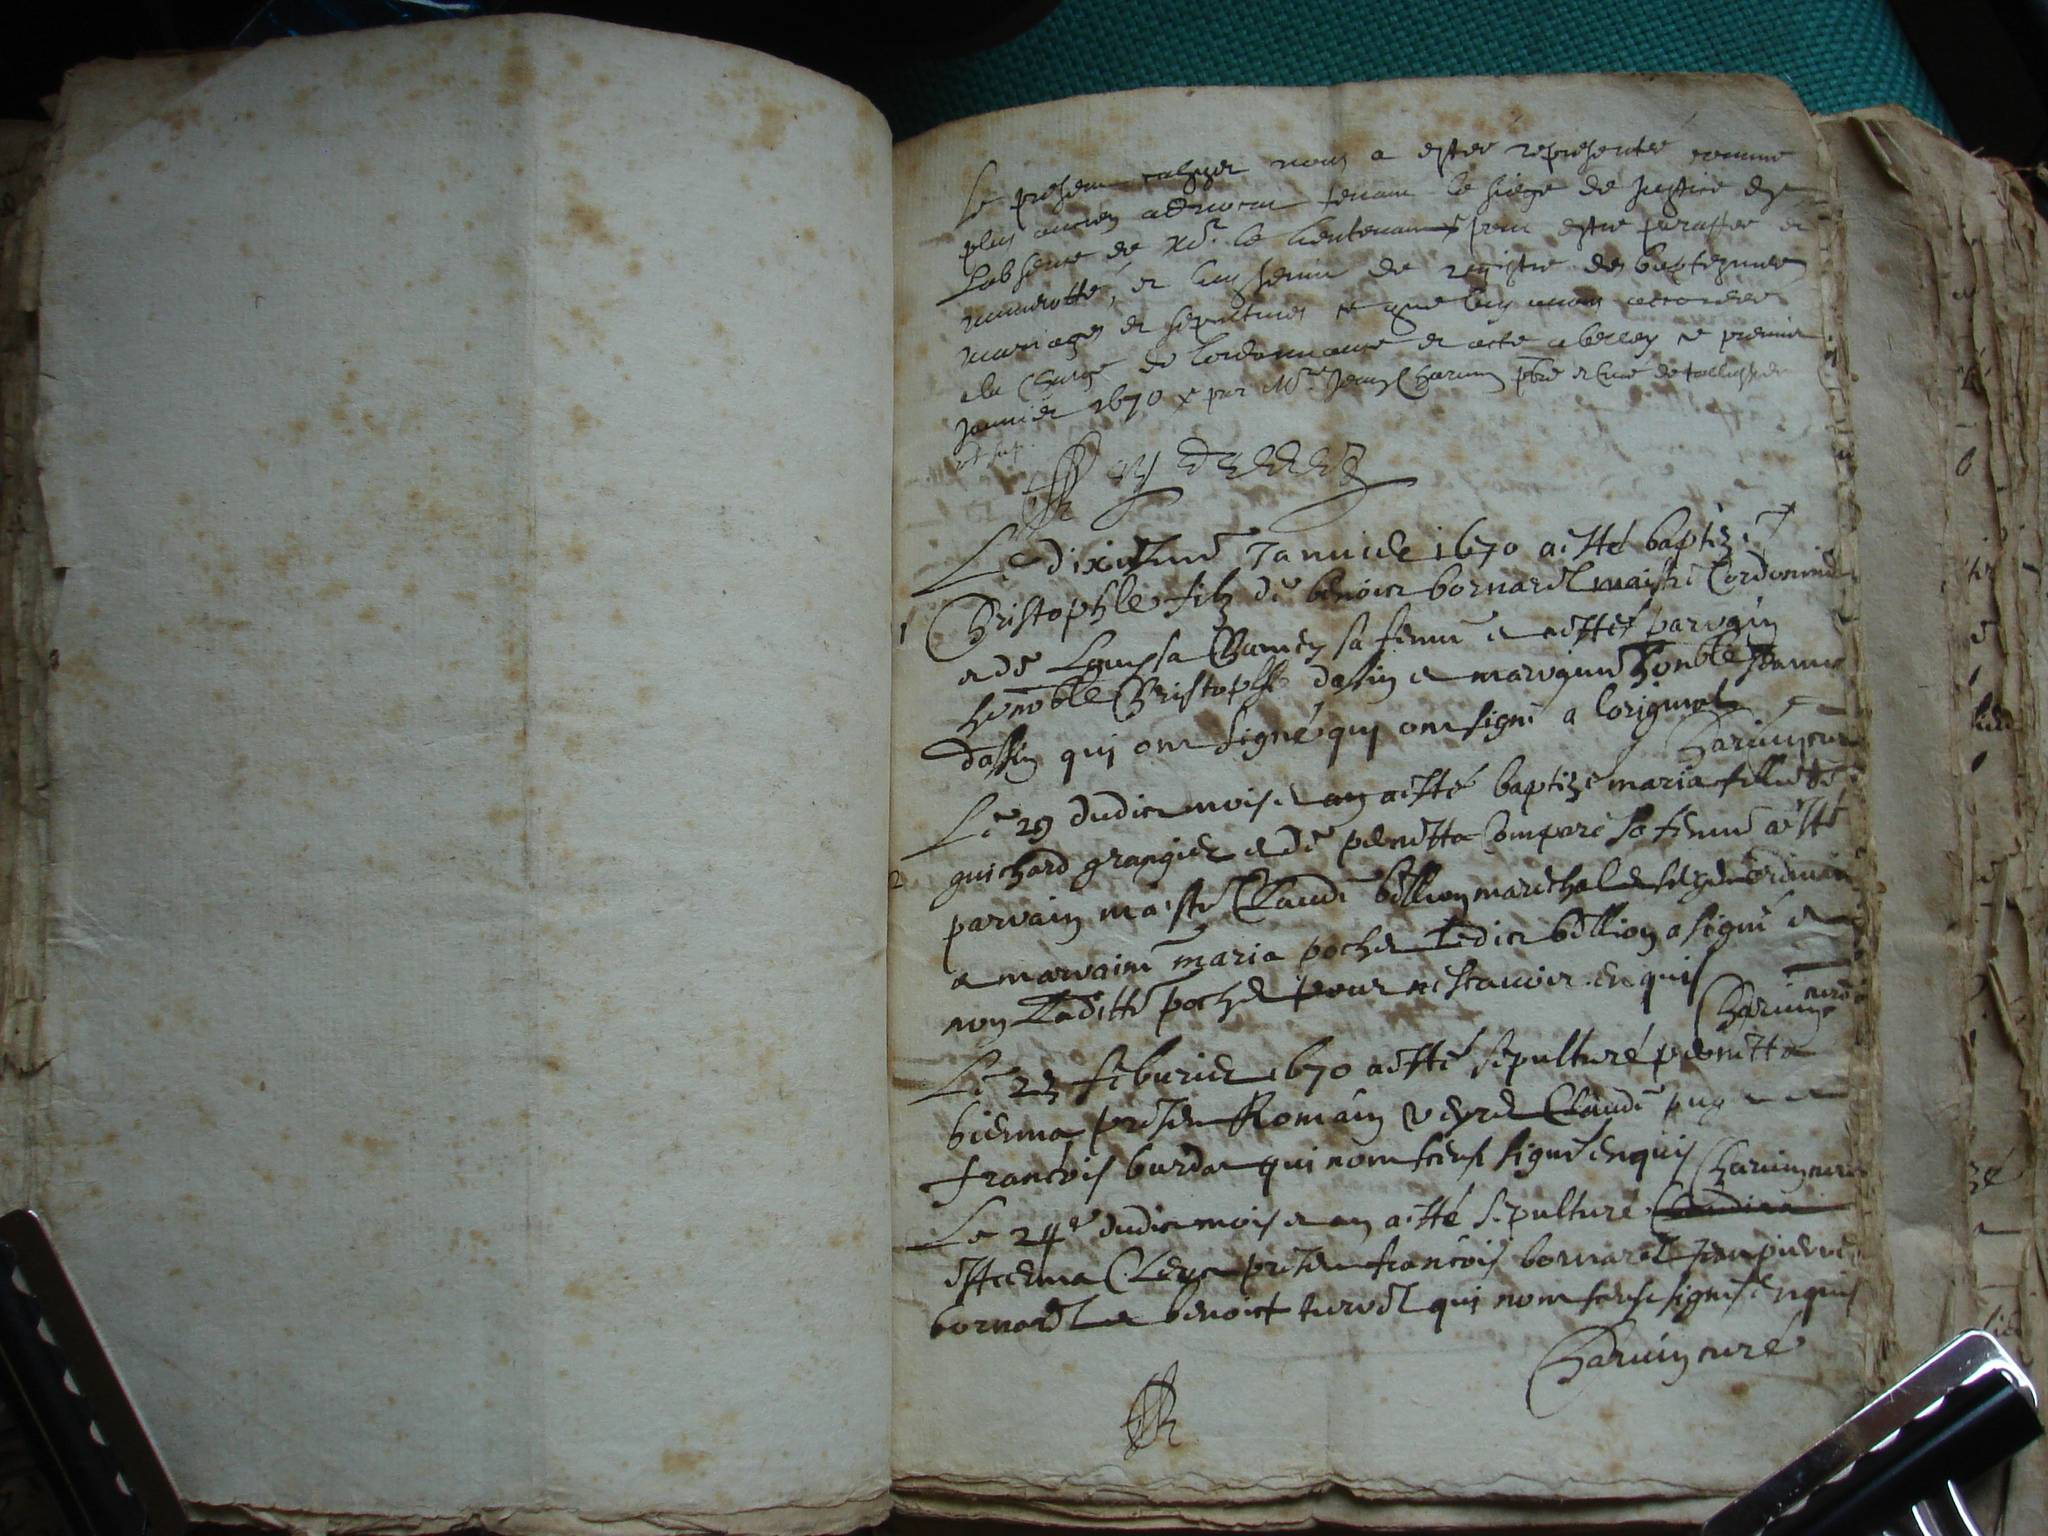 Le present cahyer nous a estee representé comme
plus ancien advocat tenant le siege de Justice en
Labsence de Mr. le Lieutenant pour estre paraffee et
numerotté, et luy servir de registre des baptesmes
mariages et sepultures ce que luy avons accordee
a la charge de lordonnance et acte a belley ce premier
Janvier 1670 x par Mre Jean Charuin pbre et Cure de
Le dixiesme Januier 1670 a esté baptizé
1 Christophle filz de benoict bornard maistre Cordonnie
et de Louysa sa femme et a esté parrain
honnoble Christophle dassin et marraine honble Jeanne
dassin qui ont signé qui ont signé a loriginal
Charuin cure
Le 29 dudict mois et an a esté baptizé maria fille de
2 guichard grangier et de pernetta Compare sa femme a esté
parrain maistre Claude billion marechal
et marraine maria pochet Ledict billion a signé et
non Laditte pochet pour ne scauoir enquis
Charuin curé
Le 23 feburier 1670 a esté sepulturé pernetta
bienna present Romain veyret Claude et
francois burdat qui nont sceust signé enquis Charuin curé
Le 24e dudict mois et an a esté sepulturé
estienna Clerc present francois bornard Jean pierre
bornard et benoict qui nont sceust signé enquis
Charuin curé